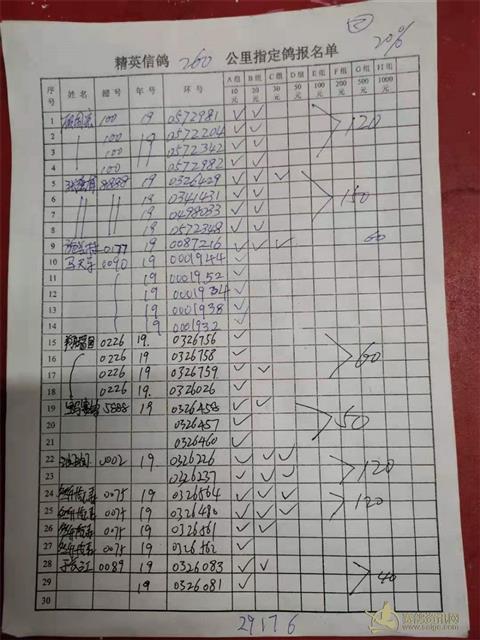 20%
精英信鸽 260 公里指定鸽报名单
序号 姓名 棚号 年号 环号 A组10元 B组20元 C组30元 D组50元 E组100元 F组200元 G组500元 H组1000元
1 100 19 0572981 ✓ ✓
2 100 0572204 ✓ ✓ 120
3 100 19 0572342 ✓ ✓
4 100 0572982 ✓ ✓
5 8888 19 0326429 ✓ ✓ ✓
6 19 0341431 ✓ ✓ 150
7 19 0498033 ✓ ✓
8 19 0572348 ✓ ✓
9 0177 19 0087216 ✓ ✓ ✓ 60
10 0090 19 0001944 ✓
11 19 0001952 ✓
12 19 0001934 ✓
13 19 0001938 ✓
14 19 0001932 ✓
15 0226 19. 0326756 ✓
16 0226 19 0326758 ✓
17 0226 19 0326759 ✓ ✓ 60
18 0226 19 0326026 ✓
19 5888 19 0326458 ✓ ✓
20 0326457 ✓ 50
21 0326460 ✓
22 0002 19. 0326226 ✓ ✓ ✓
23 0226237 ✓ ✓ ✓ 120
24 0075 19 0326564 ✓ ✓ ✓
25 0075 19 0326480 ✓ ✓ ✓ 120
26 0075 19 0326561 ✓ ✓
27 0075 19 0326562 ✓
28 0089 19 0326083 ✓ ✓
29 19 0326081 ✓ 40
30
29176
赛鸽资讯网
www.saige.com